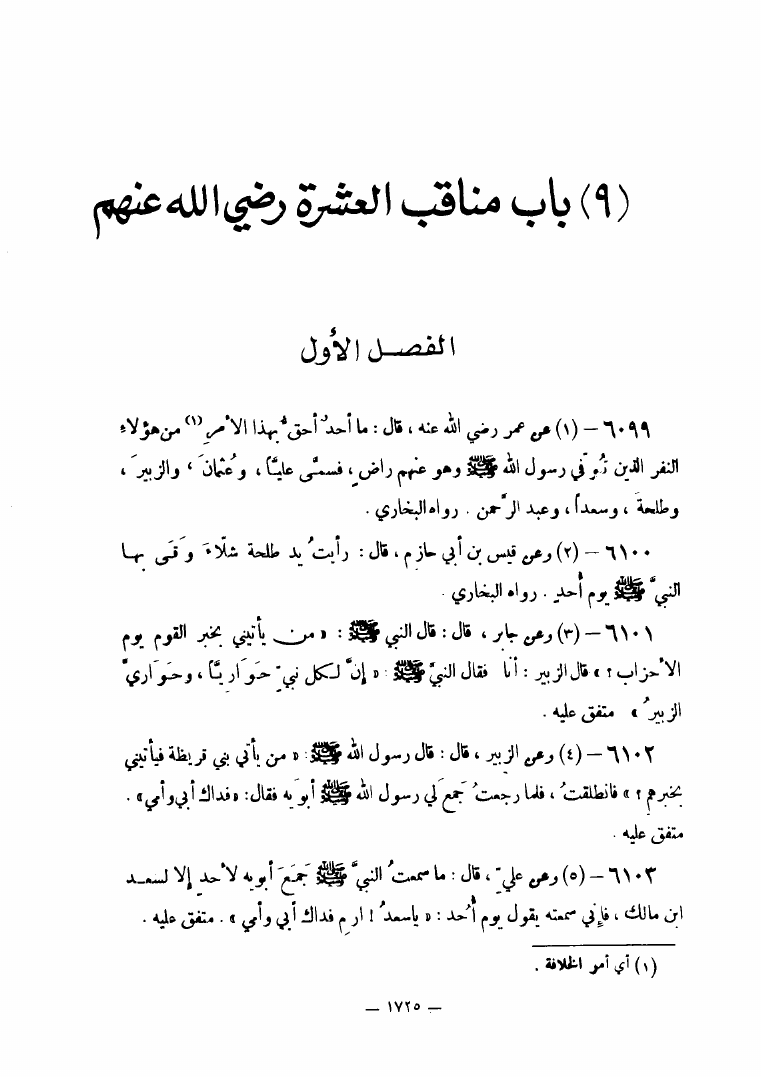 (٩) باب مناقب العشرة رضي الله عنهم
الفصل الأول
٦٠٩٩ – (١) عن عمر رضي الله عنه ، قال : ما أحدٌ أحقَّ بهذا الأمرِ(١) من هؤلاءِ
النفر الذين تُوفي رسول الله ﷺ وهو عنهم راضٍ ، فسمَّى عليَّاً ، وعُثمانَ ، والزبيرَ ،
وطلحةَ ، وسعداً ، وعبد الرَّحمن . رواه البخاري .
٦١٠٠ – (٢) وعن قيس بن أبي حازم ، قال : رأيتُ يد طلحة شلَّاءَ وَقَى بها
النبيَّ ﷺ يوم أُحدٍ . رواه البخاري .
٦١٠١ – (٣) وعن جابر ، قال : قال النبي ﷺ : « من يأتيني بخبر القوم يوم
الأحزاب ؟ » قال الزبير : أنا فقال النبيُّ ﷺ : « إنَّ لكل نبيّ حَوَاريَّاً ، وحَوَاريَّ
الزبيرُ » متفق عليه .
٦١٠٢ – (٤) وعن الزبير ، قال : قال رسول الله ﷺ : « من يأتي بني قريظة فيأتيني
بخبرهم ؟ » فانطلقتُ ، فلما رجعتُ جَمعَ لي رسول الله ﷺ أبوَيه فقال : «فداك أبي وأمي» .
متفق عليه .
٦١٠٣ – (٥) وعن عليّ ، قال : ما سمعتُ النبيَّ ﷺ جَمَعَ أبويه لأحدٍ إلا لسعد
ابن مالك ، فإني سمعته يقول يوم أُحد : « ياسعدُ ! ارمِ فداك أبي وأمي » . متفق عليه .
(١) أي أمر الخلافة .
– ١٧٢٥ –